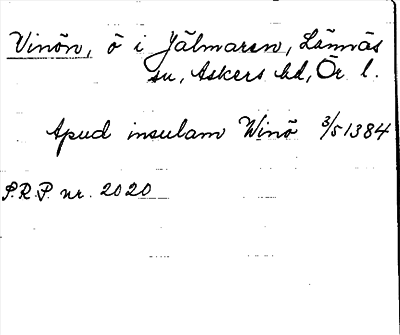 Vinön, ö i Jälmaren, Lännäs
sn, Askers hd, Ör. l.
Apud insulam Winö 3/5 1384
S.R.P. nr. 2020